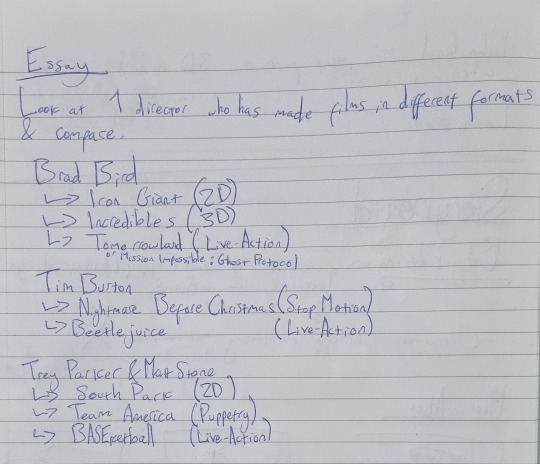 Essay
Look at 1 director who has made films in different formats
& compare.
Brad Bird
↳ Iron Giant (2D)
↳ Incredibles (3D)
↳ Tomorrowland (Live-Action)
or Mission Impossible: Ghost Protocol
Tim Burton
↳ Nightmare Before Christmas (Stop Motion)
↳ Beetlejuice (Live-Action)
Trey Parker & Matt Stone
↳ South Park (2D)
↳ Team America (Puppetry)
↳ BASEketball (Live-Action)